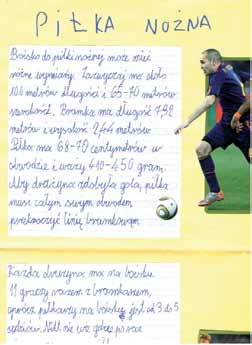 PIŁKA NOŻNA
Boisko do piłki nożnej może mieć
różne wymiary. Zazwyczaj ma około
100 metrów długości i 65-70 metrów
szerokości. Bramka ma długość 7,32
metrów i wysokość 2,44 metrów.
Piłka ma 68-70 centymetrów w
obwodzie i waży 410-450 gram.
Aby drużyna zdobyła gola, piłka
musi całym swym obwodem
przekroczyć linię bramkową.
Każda drużyna ma na boisku
11 graczy razem z bramkarzem,
oprócz piłkarzy na boisku jest od 3 do 5
sędziów. Nikt nie